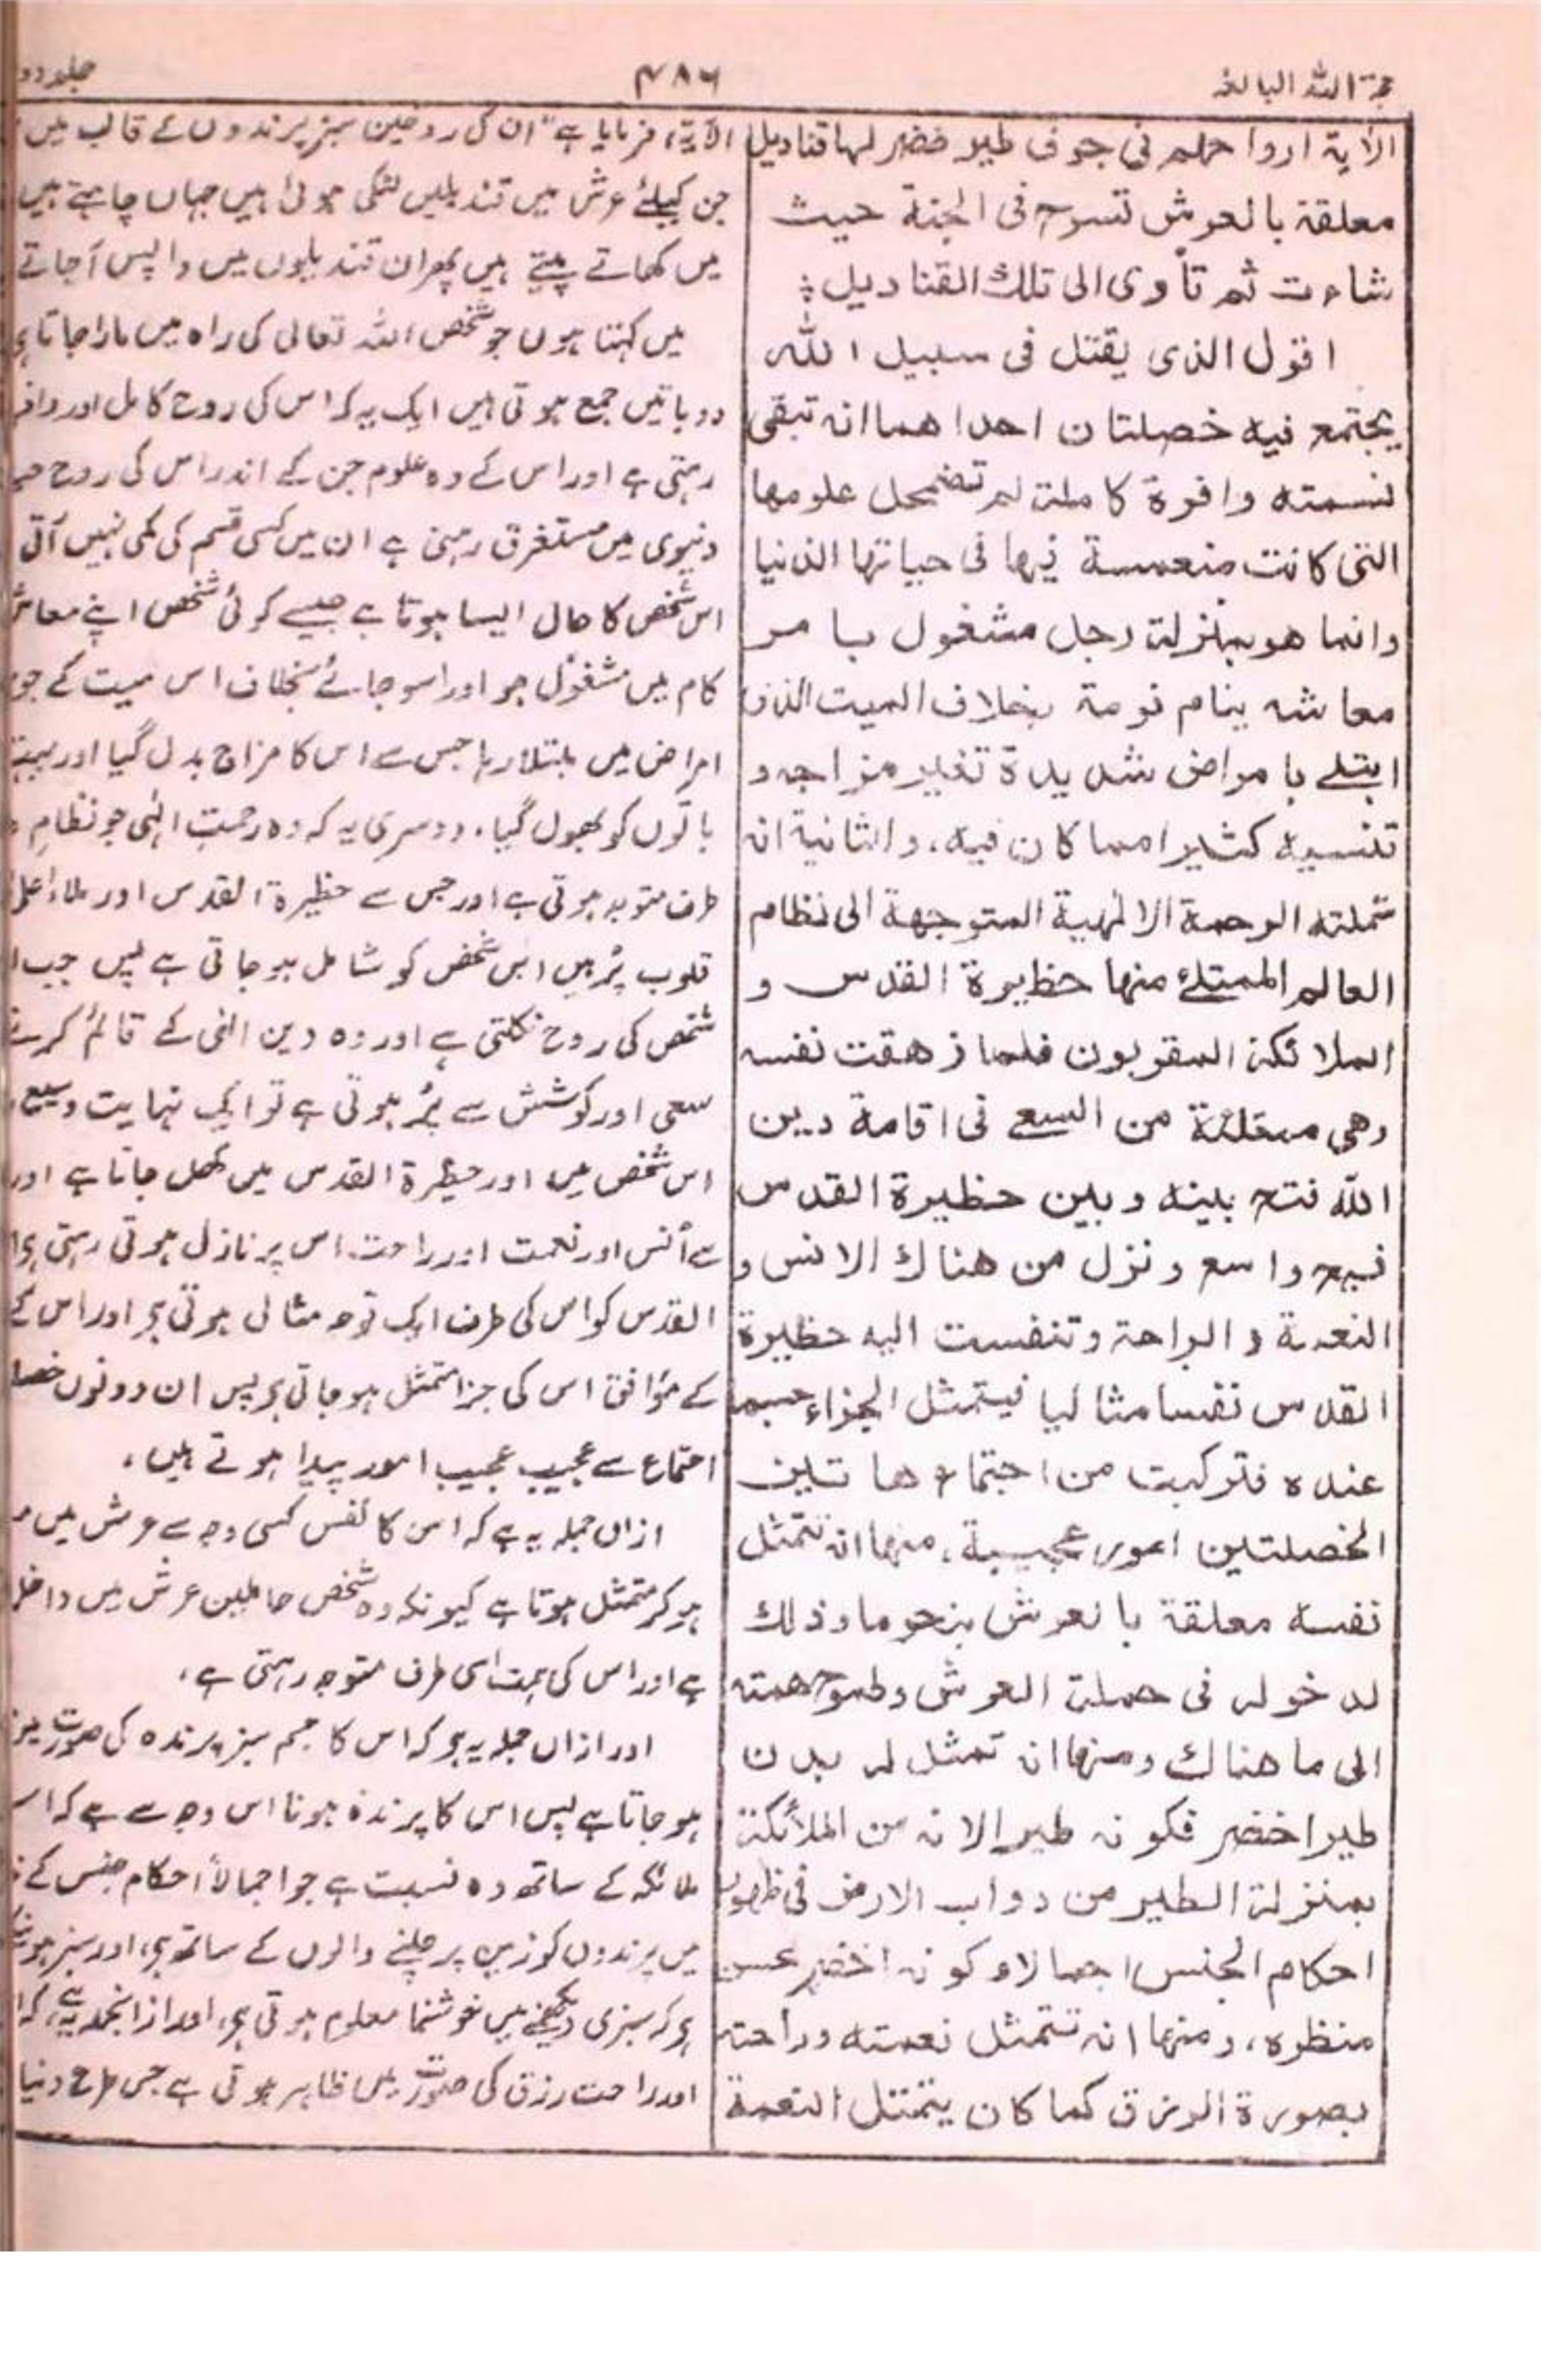 حجۃ اللہ البالغہ
۴۸۶
جلد دو
الاٰیة ارواحهم فی جوف طیر خضر لها قنادیل
معلقة بالعرش تسرح فی الجنة حیث
شاءت ثم تأوی الی تلك القنادیل ؛
اقول الذی یقتل فی سبیل الله
یجتمع فیه خصلتان احداهما انه تبقی
نسمته وافرة كاملة لم تضمحل علومها
التی كانت منغمسة فیها فی حیاتها الدنیا
وانما هو بمنزلة رجل مشغول بامر
معاشه ینام نومة بخلاف المیت الذی
ابتلے بامراض شدیدة تغیر مزاجه و
تنسیه كثیرا مما كان فیه، والثانیة انه
شملته الرحمة الالٰهیة المتوجهة الی نظام
العالم الممتلئ منها حظیرة القدس و
الملائكة المقربون فلما زهقت نفسه
وهی ممتلئة من السعے فی اقامة دین
الله فتح بینه وبین حظیرة القدس
فیج واسع ونزل من هناك الانس و
النعمة والراحة وتنفست الیه حظیرة
القدس نفسا مثالیا فیتمثل الجزاء حسبما
عنده فتركبت من اجتماع هاتین
الخصلتین امور عجیبة، منها انه تتمثل
نفسه معلقة بالعرش بنحو ما وذلك
لدخوله فی حملة العرش وطموح همته
الی ما هناك ومنها انه تمثل له بدن
طیرا خضر فكونه طیرا لانه من الملائكة
بمنزلة الطیر من دواب الارض فی ظهور
احكام الجنس اجمالا وكونه اخضر لحسن
منظره، ومنها انه تتمثل نعمته وراحته
بصورة الرزق كما كان یتمثل النعمة
الآیۃ، فرمایا ہے "ان کی روحیں سبز پرندوں کے قالب میں
جن کیلئے عرش میں قندیلیں لٹکی ہوئی ہیں جہاں چاہتے ہیں
میں کھاتے پیتے ہیں پھر ان قندیلوں میں واپس آجاتے
میں کہتا ہوں جو شخص اللہ تعالی کی راہ میں مارا جاتا ہے
دو باتیں جمع ہوتی ہیں ایک یہ کہ اس کی روح کامل اور وافر
رہتی ہے اور اس کے وہ علوم جن کے اندر اس کی روح
دنیوی میں مستغرق رہتی ہے ان میں کسی قسم کی کمی نہیں آتی
اس شخص کا حال ایسا ہوتا ہے جیسے کوئی شخص اپنے معاش
کام میں مشغول ہو اور ذرا سو جائے بخلاف اس میت کے جو
امراض میں مبتلا رہا جس سے اس کا مزاج بدل گیا اور بہت
باتوں کو بھول گیا، دوسری یہ کہ وہ رحمت الٰہی جو نظام
طرف متوجہ ہوتی ہے اور جس سے حظیرۃ القدس اور ملاء اعلی
قلوب پُر ہیں اس شخص کو شامل ہو جاتی ہے پس جب
شخص کی روح نکلتی ہے اور وہ دین الٰہی کے قائم کرنے
سعی اور کوشش سے پُر ہوتی ہے تو ایک نہایت وسیع
اس شخص میں اور حظیرۃ القدس میں کھل جاتا ہے اور
سے اُنس اور نعمت اور راحت اس پر نازل ہوتی رہتی ہے
القدس کو اس کی طرف ایک توجہ مثالی ہوتی ہے اور اس کے
کے موافق اس کی جزا متمثل ہو جاتی ہے پس ان دونوں
اجتماع سے عجیب عجیب امور پیدا ہوتے ہیں،
ازاں جملہ یہ ہے کہ اس کا نفس کسی وجہ سے عرش میں
ہو کر متمثل ہوتا ہے کیونکہ وہ شخص حاملین عرش میں داخل
ہے اور اس کی ہمت اسی طرف متوجہ رہتی ہے،
اور ازاں جملہ یہ ہے کہ اس کا جسم سبز پرندہ کی صورت
ہو جاتا ہے پس اس کا پرندہ ہونا اس وجہ سے ہے کہ
ملائکہ کے ساتھ وہ نسبت ہے جو اجمالاً احکام جنس کے
میں پرندوں کو زمین پر چلنے والوں کے ساتھ ہے، اور سبز
ہے کہ سبزی دیکھنے میں خوشنما معلوم ہوتی ہے، اور ازانجملہ یہ ہے کہ
اور راحت رزق کی صورت میں ظاہر ہوتی ہے جس طرح دنیا